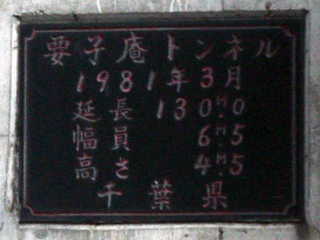 要子庵トンネル
1981年3月
延長 130M.0
幅員 6M.5
高さ 4M.5
千葉県